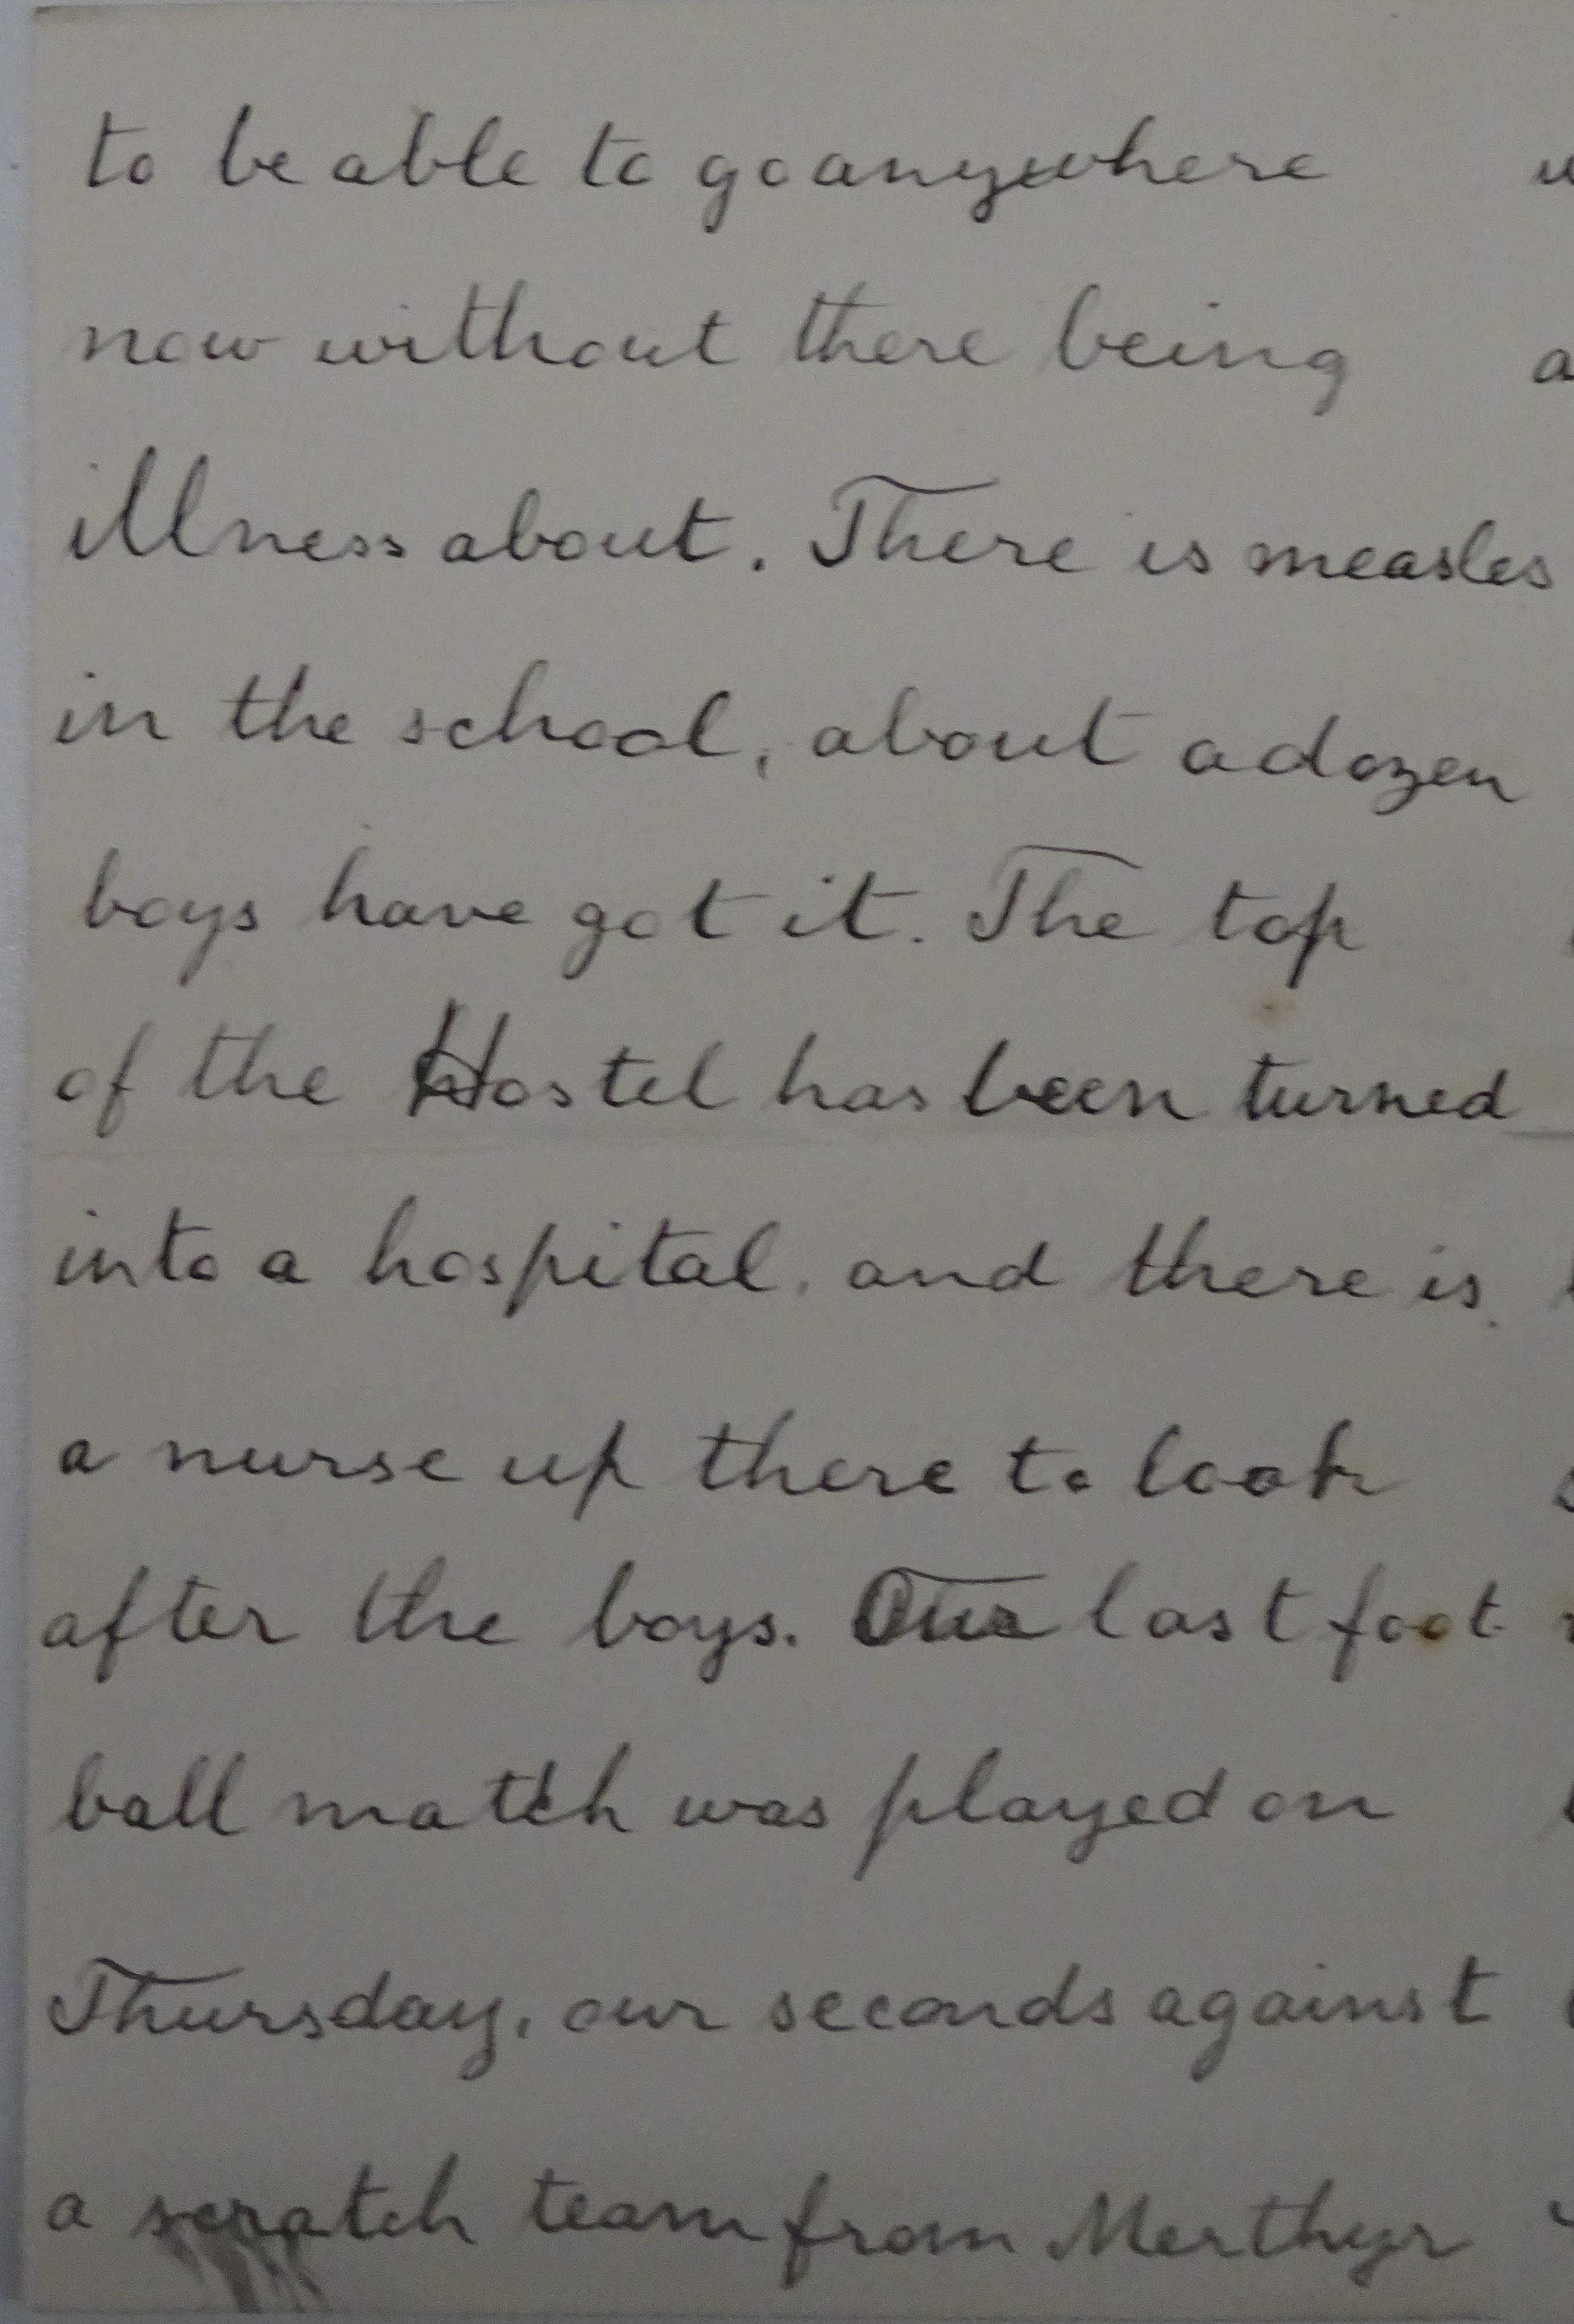 to be able to go anywhere
now without there being
illness about. There is measles
in the school, about a dozen
boys have got it. The top
of the Hostel has been turned
into a hospital, and there is
a nurse up there to look
after the boys. Our last foot
ball match was played on
Thursday, our seconds against
a scratch team from Merthyr